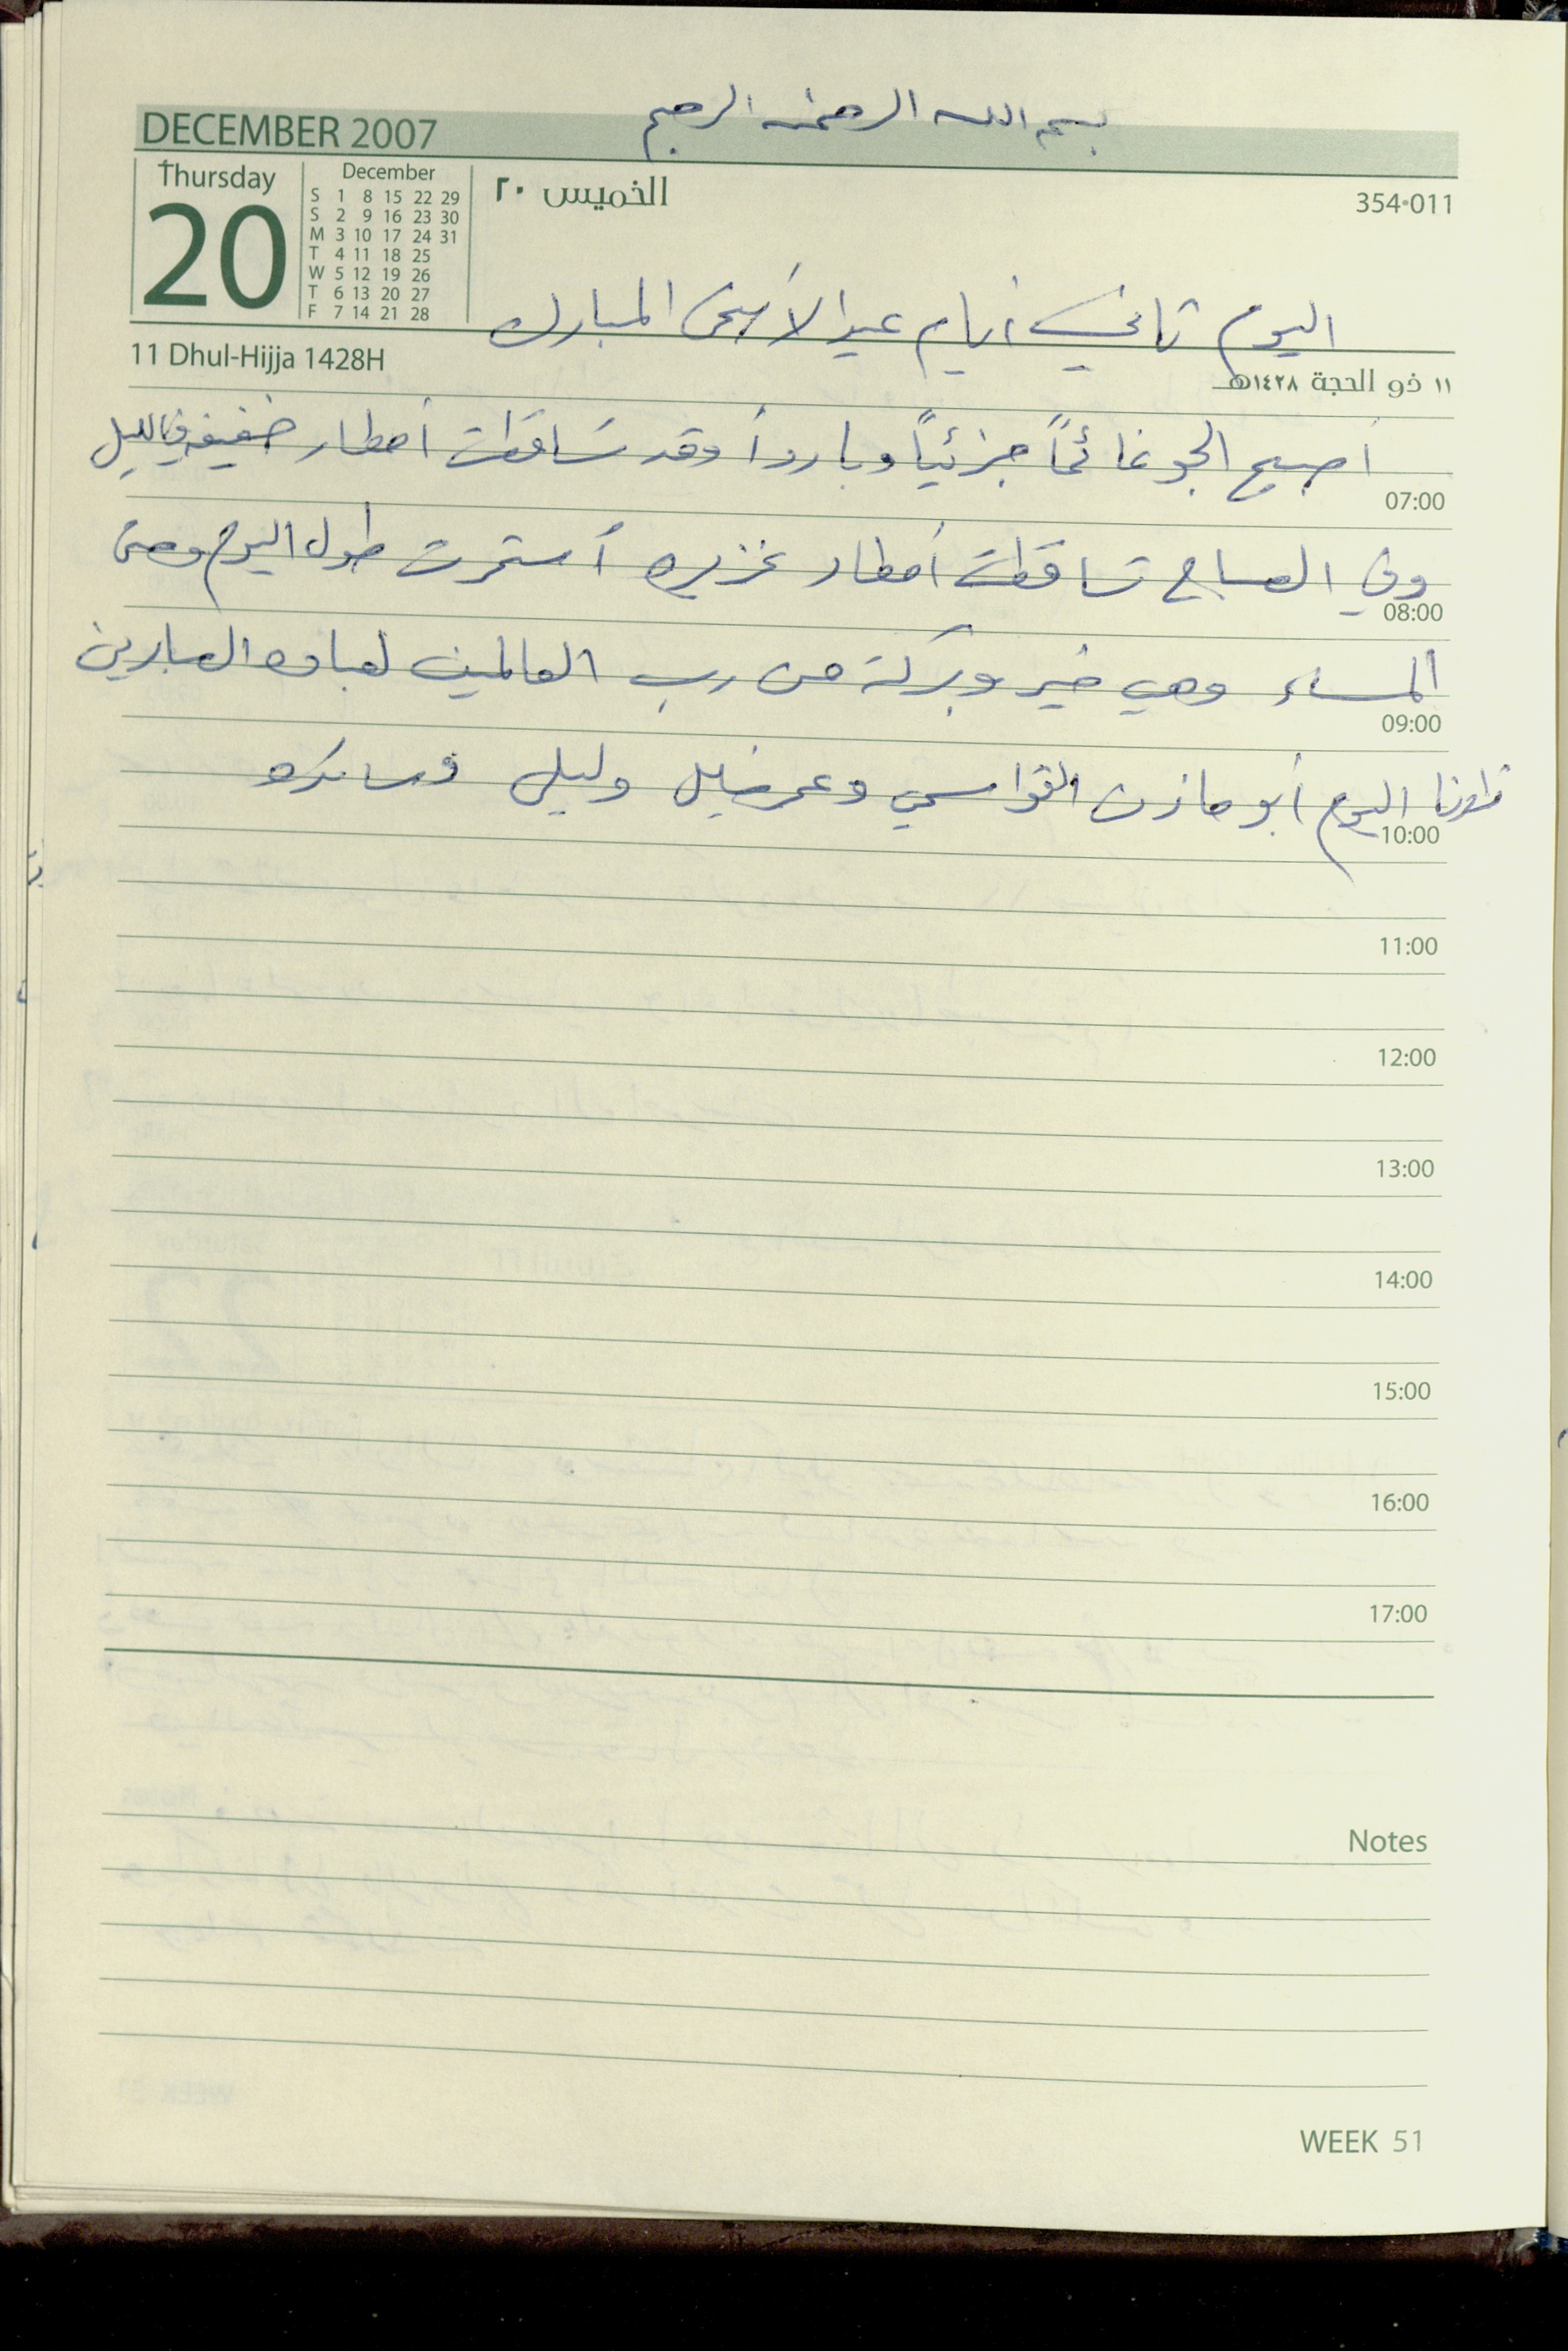 بسم الله الرحمن الرحيم
DECEMBER 2007
Thursday
20
December
S 1 8 15 22 29
S 2 9 16 23 30
M 3 10 17 24 31
T 4 11 18 25
W 5 12 19 26
T 6 13 20 27
F 7 14 21 28
الخميس ٢٠
354•011
اليوم ثاني أيام عيد الأضحى المبارك
11 Dhul-Hijja 1428H
١١ ذو الحجة ١٤٢٨هـ
أصبح الجو غائماً جزئياً وبارداً وقد تساقطت أمطار خفيفه في الليل
07:00
وفي الصباح تساقطت أمطار غزيره أستمرت طول اليوم وحتى
08:00
المساء وهي خير وبركة من رب العالمين لعباده الصابرين
09:00
زارنا اليوم أبو مازن القواسمي وعمر وليلى
10:00
11:00
12:00
13:00
14:00
15:00
16:00
17:00
Notes
WEEK 51